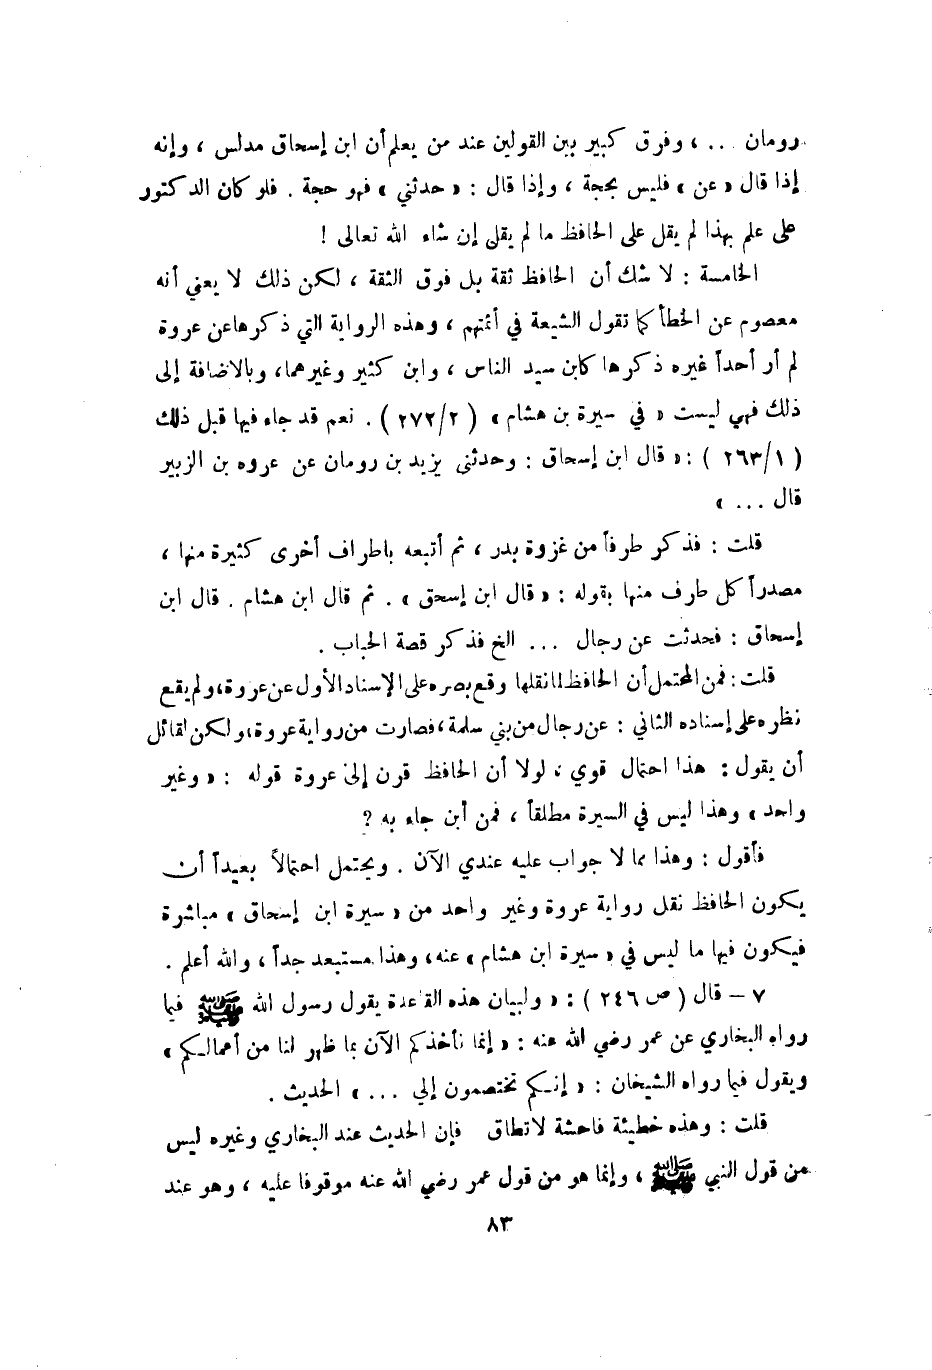 رومان ... ، وفرق كبير بين القولين عند من يعلم أن ابن إسحاق مدلس ، وإنه
إذا قال « عن » فليس بحجة ، وإذا قال : « حدثني » فهو حجة . فلو كان الدكتور
على علم بهذا لم يقل على الحافظ ما لم يقل إن شاء الله تعالى !
الخامسة : لا شك أن الحافظ ثقة بل فوق الثقة ، لكن ذلك لا يعني أنه
معصوم عن الخطأ كما تقول الشيعة في أئمتهم ، وهذه الرواية التي ذكرها عن عروة
لم أر أحداً غيره ذكرها كابن سيد الناس ، وابن كثير وغيرهما، وبالاضافة إلى
ذلك فهي ليست « في سيرة بن هشام » ( ٢٧٢/٢ ) . نعم قد جاء فيها قبل ذلك
( ٢٦٣/١ ) : « قال ابن إسحاق : وحدثنى يزيد بن رومان عن عروه بن الزبير
قال ... »
قلت : فذكر طرفاً من غزوة بدر ، ثم أتبعه باطراف أخرى كثيرة منها ،
مصدراً كل طرف منها بقوله : « قال ابن إسحق » . ثم قال ابن هشام . قال ابن
إسحاق : فحدثت عن رجال ... الخ فذكر قصة الحباب .
قلت : فمن المحتمل أن الحافظ لما نقلها وقع بصره على الإسناد الأول عن عروة، ولم يقع
نظره على إسناده الثاني : عن رجال من بني سلمة ، فصارت من رواية عروة، ولكن لقائل
أن يقول : هذا احتمال قوي ، لولا أن الحافظ قرن إلى عروة قوله : « وغير
واحد » وهذا ليس في السيرة مطلقاً ، فمن أين جاء به ?
فأقول : وهذا مما لا جواب عليه عندي الآن . ويحتمل احتمالاً بعيداً أن
يكون الحافظ نقل رواية عروة وغير واحد من « سيرة ابن إسحاق » مباشرة
فيكون فيها ما ليس في « سيرة ابن هشام » عنه، وهذا مستبعد جداً ، والله أعلم .
٧ – قال ( ص ٢٤٦ ) : « ولبيان هذه القاعدة يقول رسول الله ﷺ فيما
رواه البخاري عن عمر رضي الله عنه : « إنما نأخذكم الآن بما ظهر لنا من أعمالكم »
ويقول فيما رواه الشيخان : « إنكم تختصمون إلي ... » الحديث .
قلت : وهذه خطيئة فاحشة لاتطاق فإن الحديث عند البخاري وغيره ليس
من قول النبي ﷺ ، وإنما هو من قول عمر رضي الله عنه موقوفا عليه ، وهو عند
٨٣